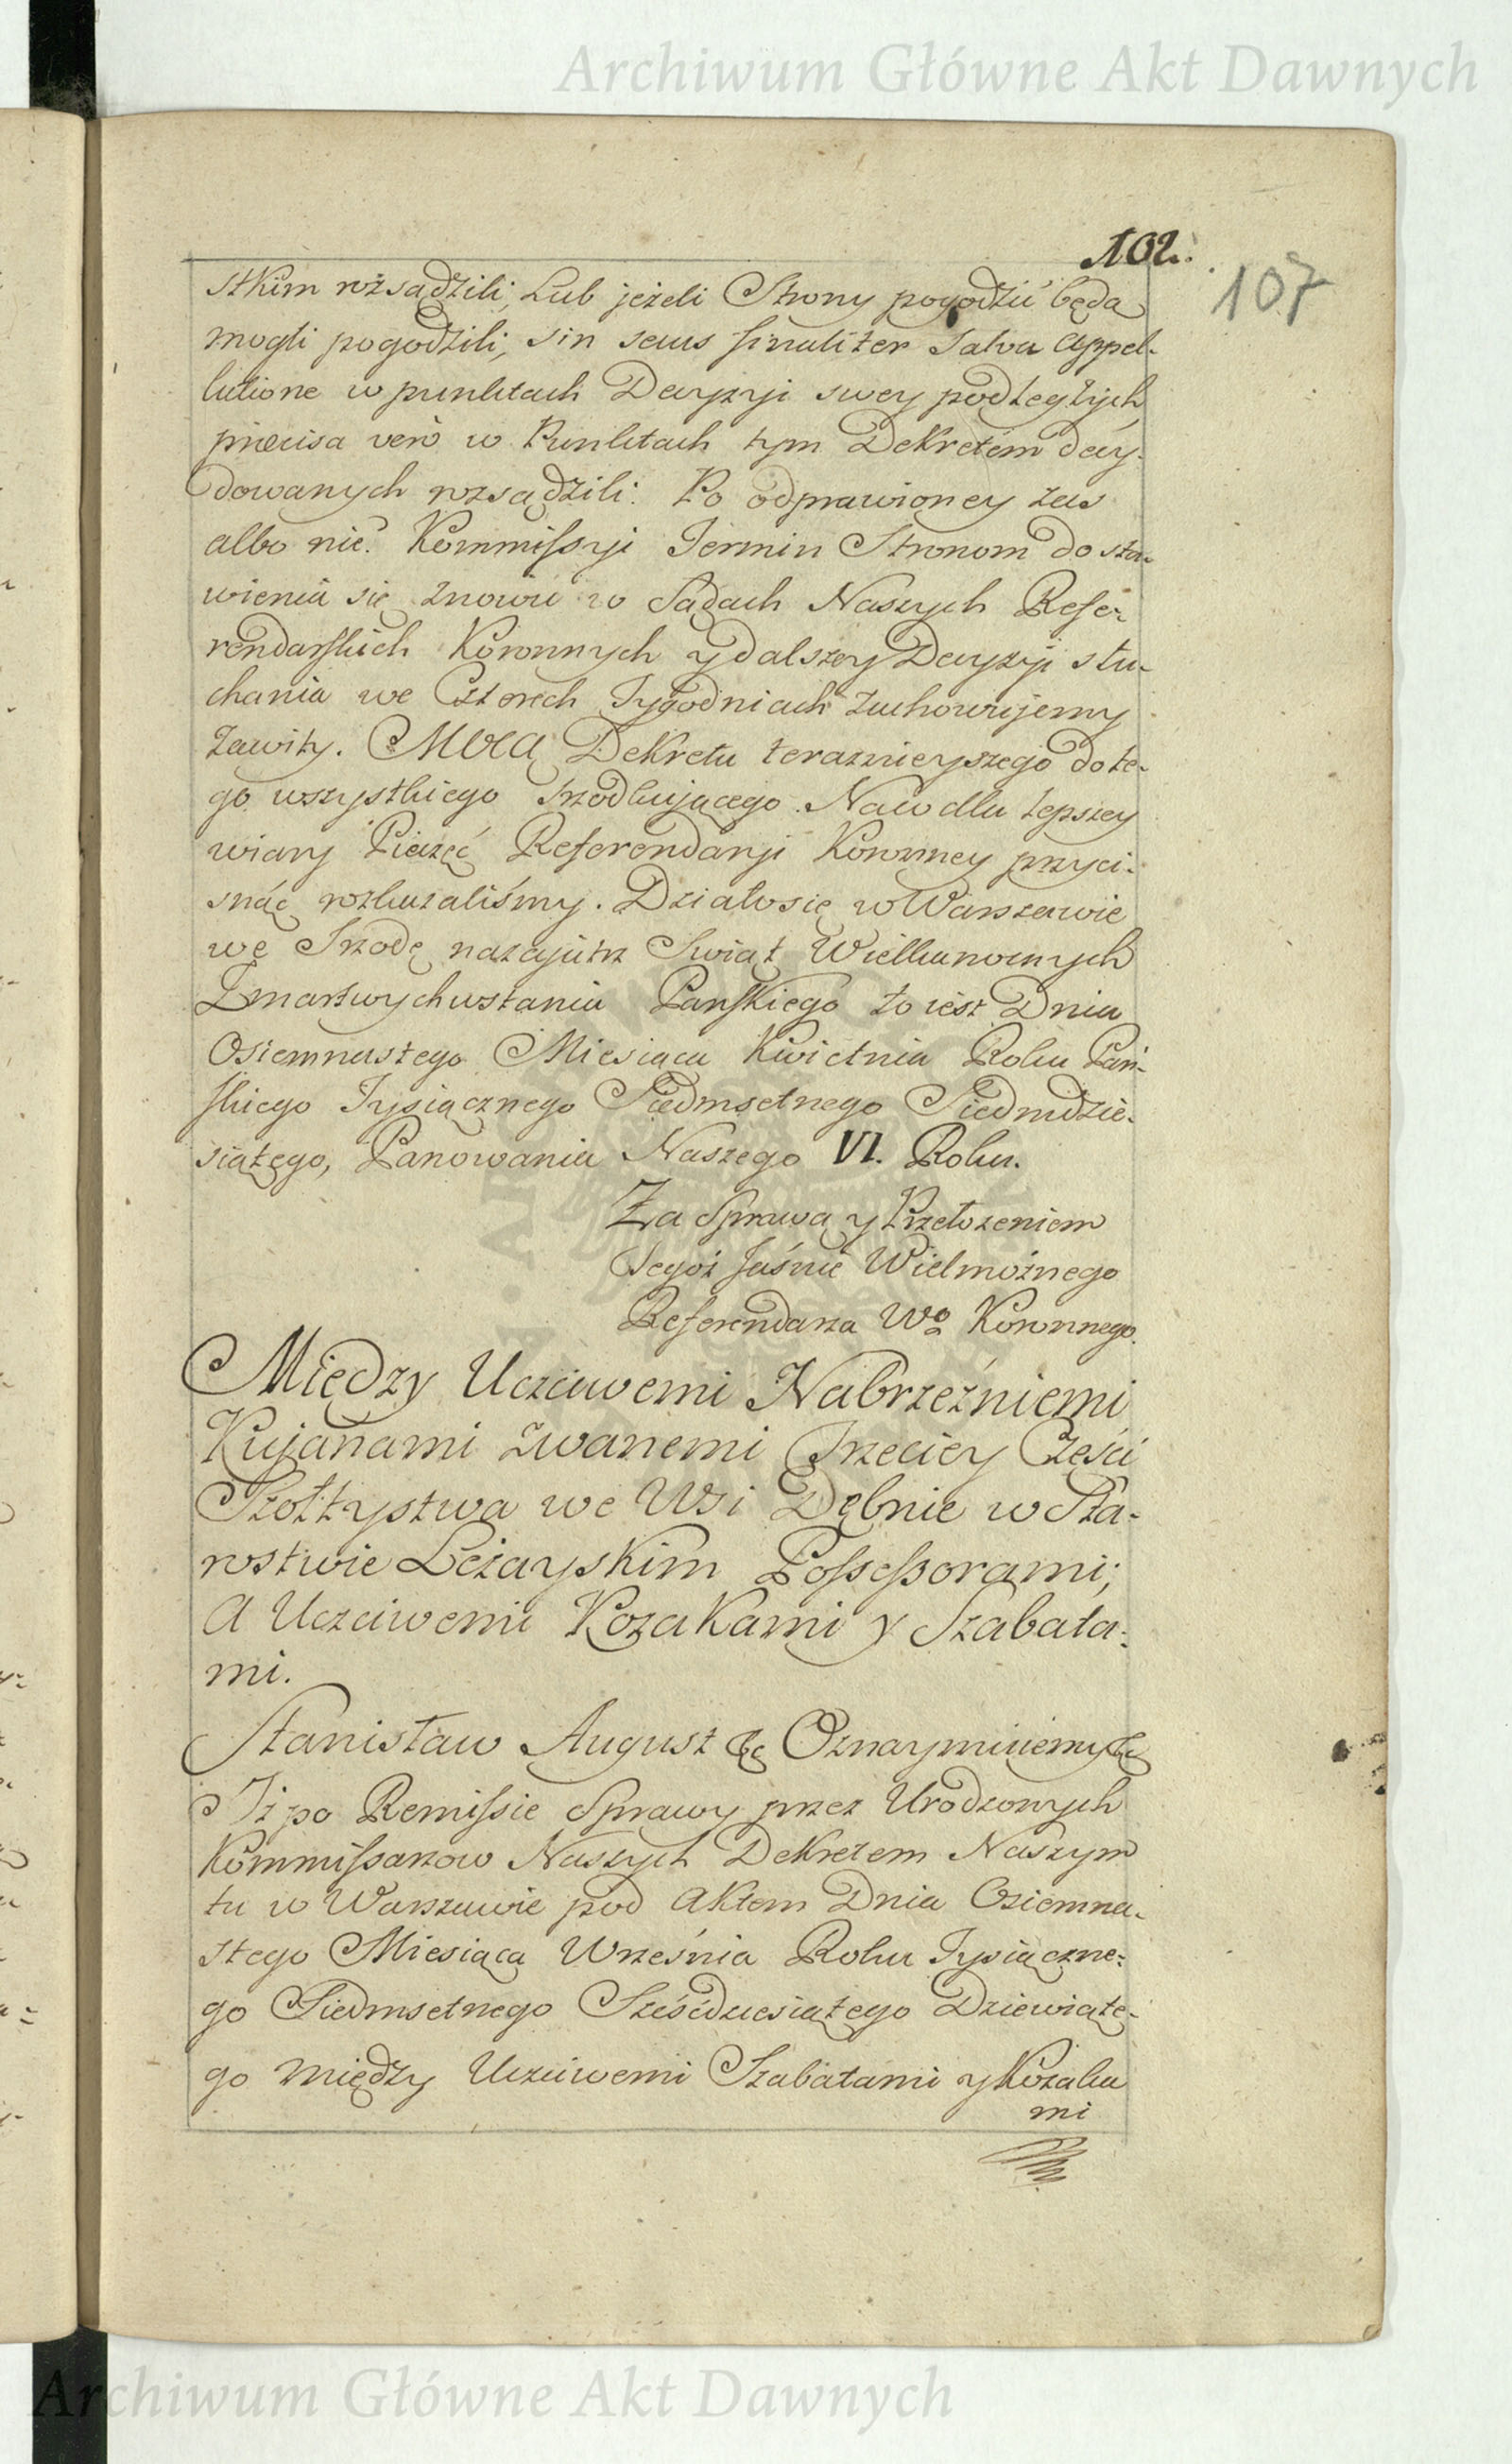 Archiwum Główne Akt Dawnych
102.
107
stkim rozsądzili, Lub jeżeli Strony pogodzić będą
mogli pogodzili, sin secus finaliter salva Appel-
latione w punktach Decyzyi swey podległych
præcisa verò w Punktach tym Dekretem decy-
dowanych rozsądzili: Po odprawioney zas
albo nie Kommissyi Termin Stronom do sta-
wienia się znowu w Sądach Naszych Refe-
rendarskich Koronnych y dalszey Decyzyi słu-
chania we Czterech Tygodniach zachowujemy
Zawity. Mocą Dekretu teraznieyszego do te-
go wszystkiego srzodkującego. Na co dla lepszey
wiary Pieczęć Referendaryi Koronney przyci-
snąć rozkazaliśmy. Działo się w Warszawie
we Srzodę nazajutrz Swiąt Wielkanocnych
Zmartwychwstania Panskiego to iest Dnia
Osiemnastego Miesiąca Kwietnia Roku Pań-
skiego Tysiącznego Siedmsetnego Siedmdzie-
siątego, Panowania Naszego VI. Roku.
Za Sprawą y Przełożeniem
Tegoż Jaśnie Wielmożnego
Referendarza Wo Koronnego.
Między Uczciwemi Nabrzeźniemi
Kujanami zwanemi Trzeciey Części
Szołtystwa we Wsi Dębnie w Sta-
rostwie Leżayskim Possessorami;
A Uczciwemi Kozakami y Szabata-
mi.
Stanisław August &c Oznaymujemy &c
Iż po Remissie Sprawy przez Urodzonych
Kommissarzow Naszych Dekretem Naszym
tu w Warszawie pod Aktem Dnia Osiemna-
stego Miesiąca Września Roku Tysiączne-
go Siedmsetnego Sześćdziesiątego Dziewiąte-
go między Uczciwemi Szabatami y Kozaka
mi
Archiwum Główne Akt Dawnych